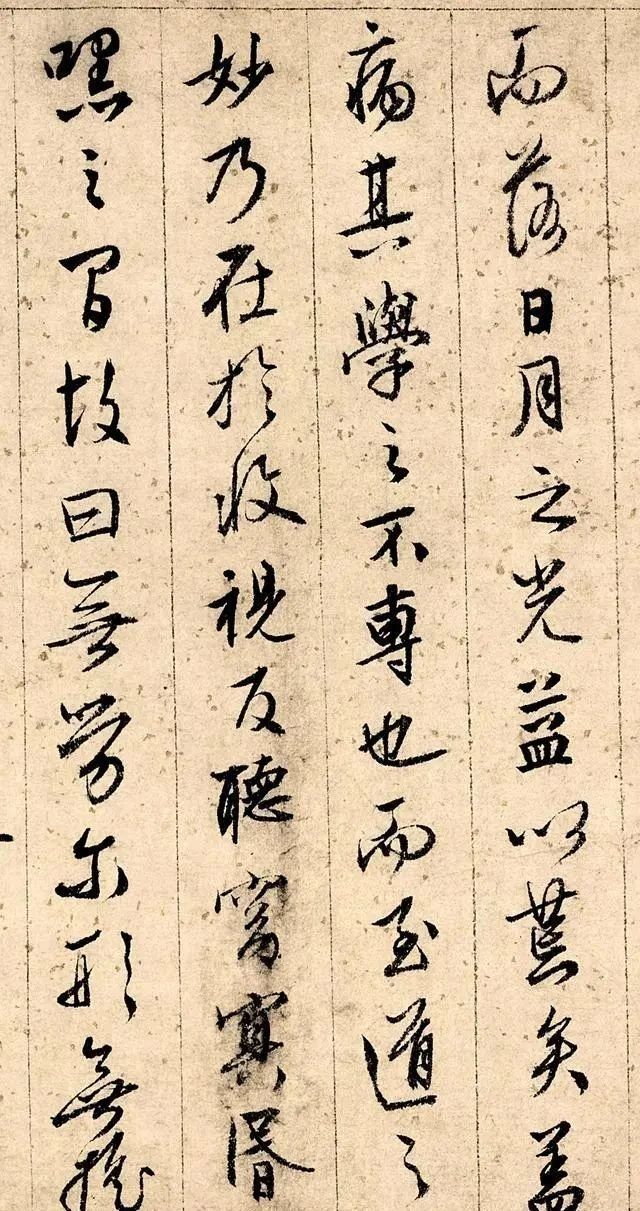 而落日月之光益以荒矣蓋
病其學之不專也而至道之
妙乃在於收視反聽窈冥昏
嘿之間故曰無勞尔形無搖